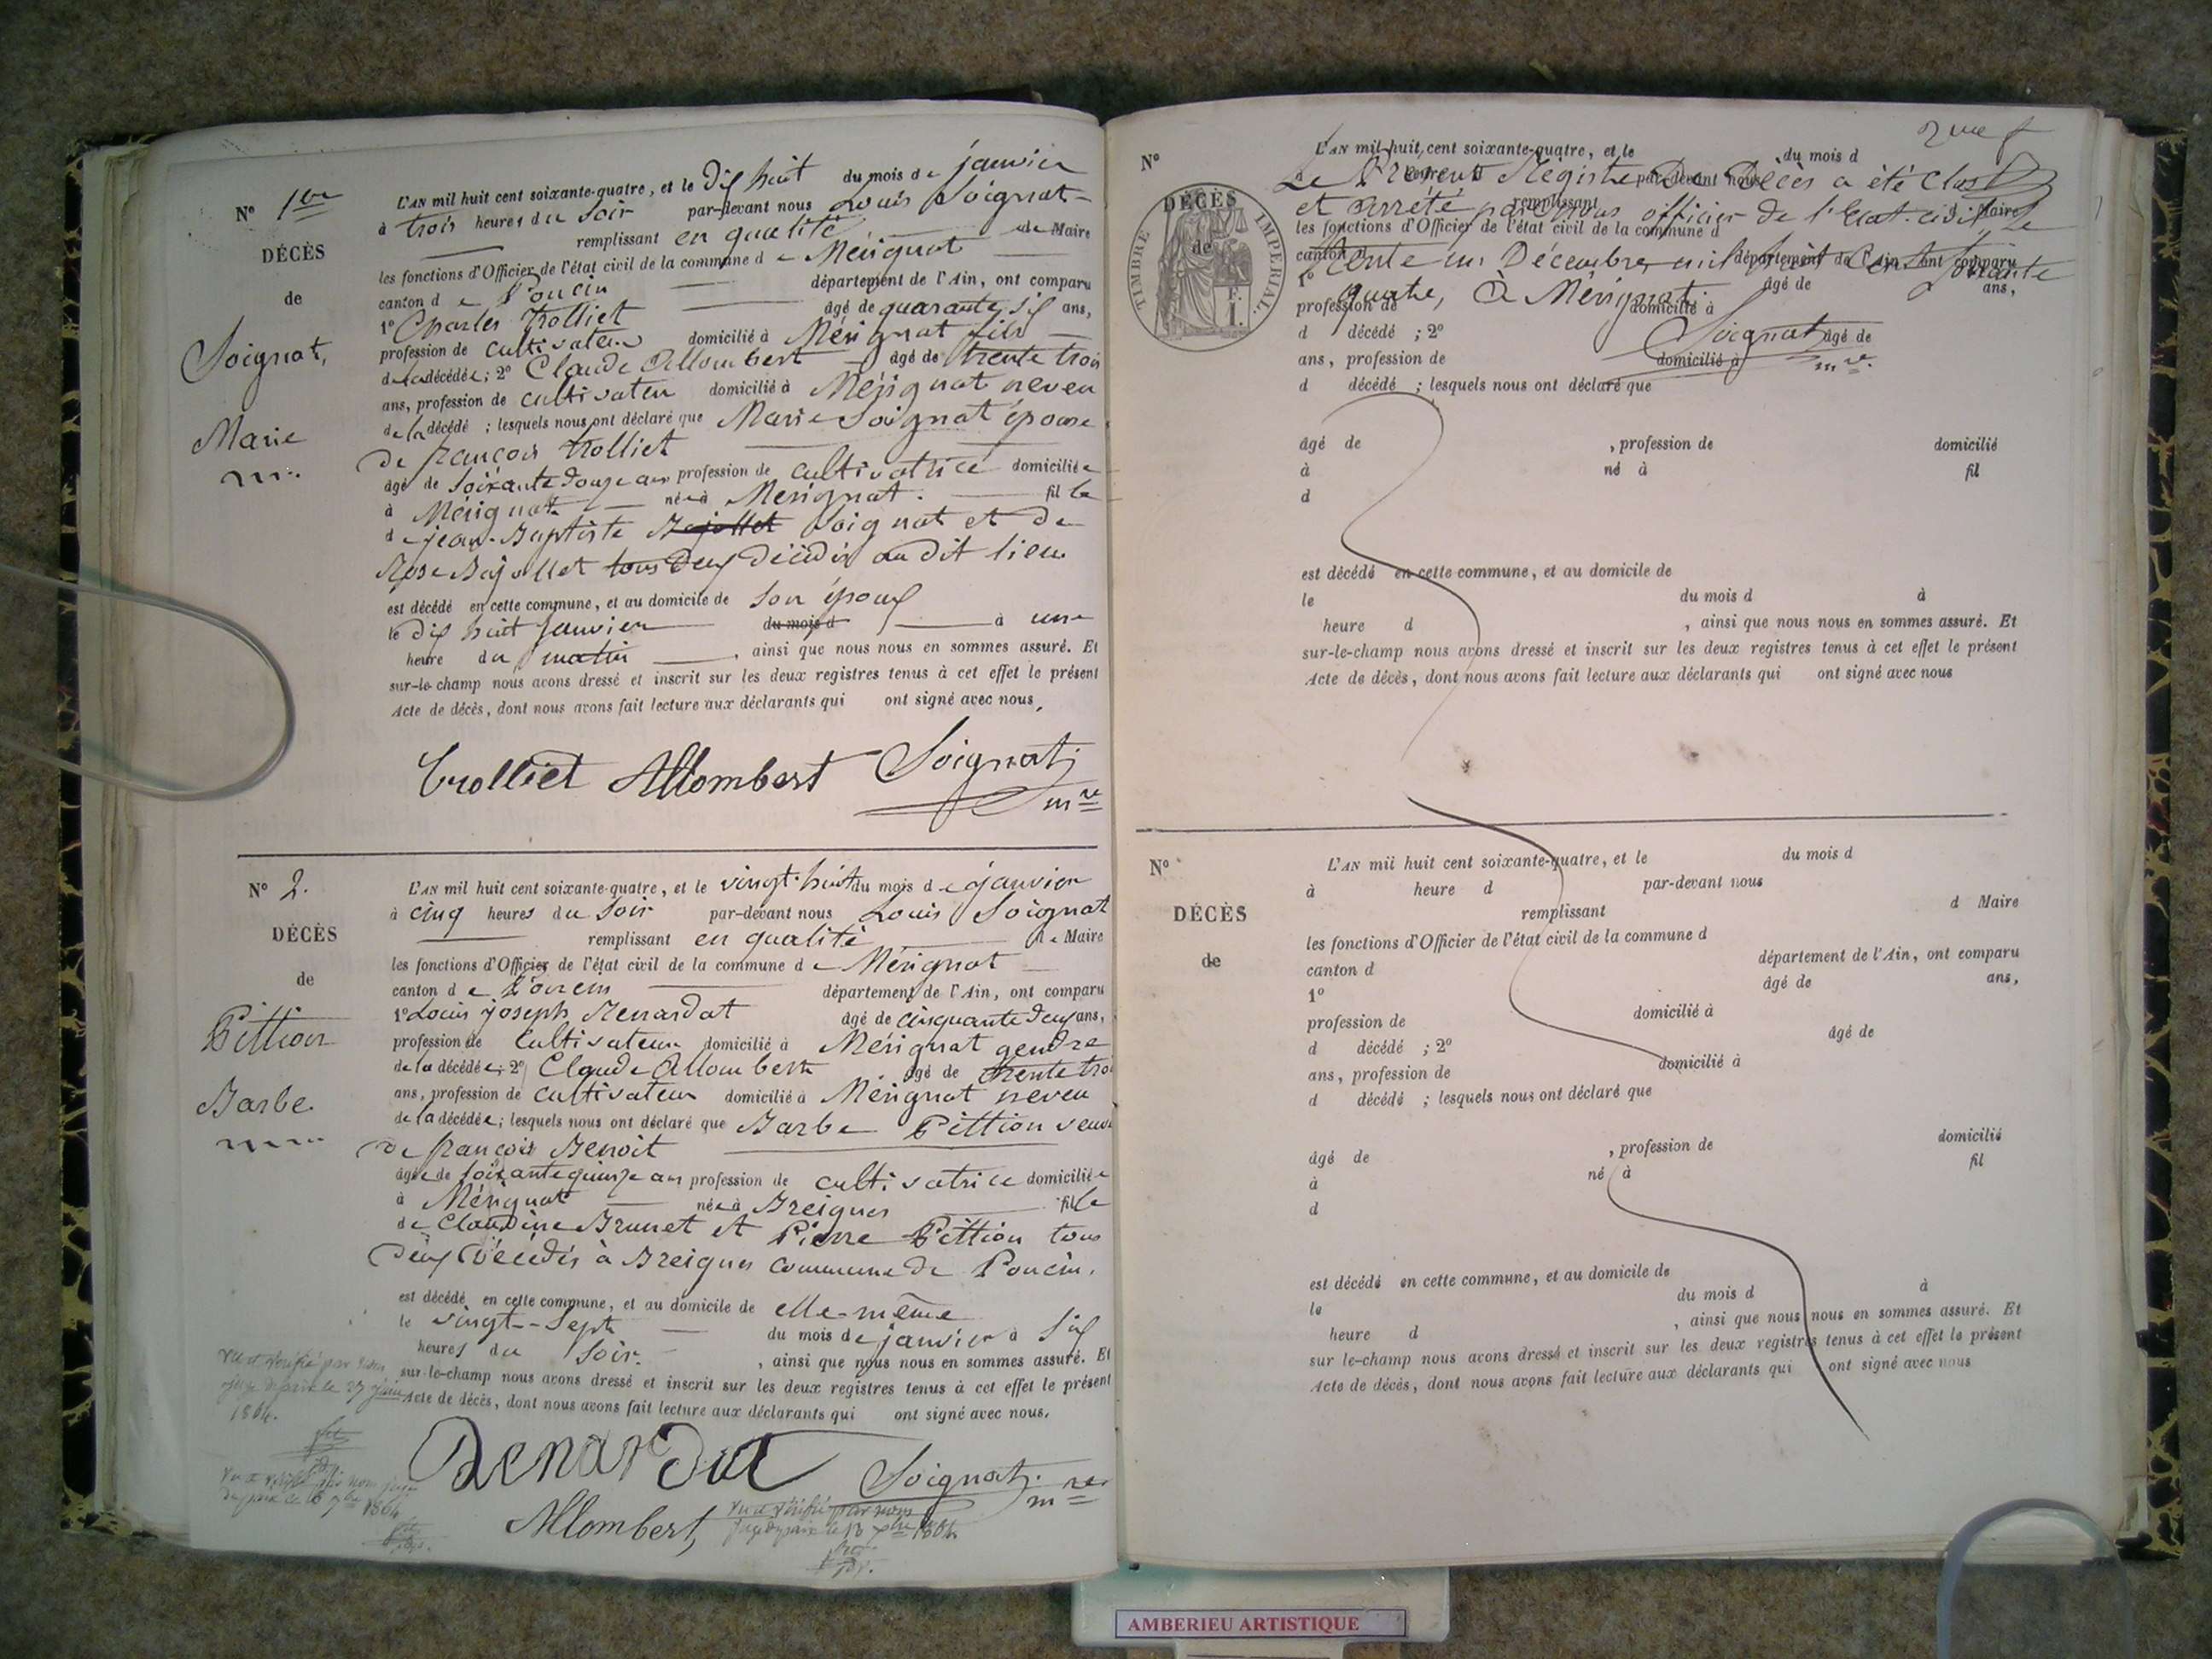 N° 1er
DÉCÈS
de
Soignat,
Marie
L'AN mil huit cent soixante-quatre, et le dix huit du mois de janvier
à trois heures du soir par-devant nous Louis Soignat
remplissant en qualité de Maire
les fonctions d'Officier de l'état civil de la commune de Mérignat
canton de Poncin département de l'Ain, ont comparu
1° Charles Trolliet âgé de quarante six ans,
profession de cultivateur domicilié à Mérignat fils
de la décédée; 2° Claude Allombert âgé de trente trois
ans, profession de cultivateur domicilié à Mérignat neveu
de la décédé ; lesquels nous ont déclaré que Marie Soignat épouse
de françois Trolliet
âgé de soixante douze ans profession de cultivatrice domiciliée
à Mérignat née à Mérignat. fille
de jean-Baptiste Bajollet Soignat et de
Rose Bajollet tous deux décédés au dit lieu
est décédé en cette commune, et au domicile de son époux
le dix huit janvier du mois d à une
heure du matin , ainsi que nous nous en sommes assuré. Et
sur-le-champ nous avons dressé et inscrit sur les deux registres tenus à cet effet le présent
Acte de décès, dont nous avons fait lecture aux déclarants qui ont signé avec nous.
Trolliet Allombert Soignat
mre
N° 2.
DÉCÈS
de
Pittion
Barbe
L'AN mil huit cent soixante-quatre, et le vingt-huit du mois de janvier
à cinq heures du soir par-devant nous Louis Soignat
remplissant en qualité de Maire
les fonctions d'Officier de l'état civil de la commune de Mérignat
canton de Poncin département de l'Ain, ont comparu
1° Louis joseph Renardat âgé de cinquante deux ans,
profession de cultivateur domicilié à Mérignat gendre
de la décédée; 2° Claude Allombert âgé de trente tro
ans, profession de cultivateur domicilié à Mérignat neveu
de la décédée; lesquels nous ont déclaré que Barbe Pittion veuv
de françois Benoit
âgée de soixante quinze ans profession de cultivatrice domiciliée
à Mérignat née à Breignes fille
de Claudine Brunet et Pierre Pittion tous
deux décédés à Breignes commune de Poncin.
est décédé en cette commune, et au domicile de elle-même
le vingt-sept du mois de janvier à six
heures du soir. , ainsi que nous nous en sommes assuré. Et
sur-le-champ nous avons dressé et inscrit sur les deux registres tenus à cet effet le présent
Acte de décès, dont nous avons fait lecture aux déclarants qui ont signé avec nous.
Vu et vérifié par nous
juge de paix le 27 juin
1864.
Renardat Soignat
mre
Allombert,
Vu et vérifié par nous juge
de paix le 1864
Vu et vérifié par nous
juge de paix le 13 1864
N°
DÉCÈS
de
TIMBRE IMPÉRIAL.
F. I.
L'AN mil huit cent soixante-quatre, et le du mois d
Le Présent Registre de Décès a été Clos
et arrêté par Nous officier de l'état-civil, le
trente un Décembre mil huit Cent soixante
quatre, à Mérignat.
Soignat
mre.
par-devant nous
remplissant d Maire
les fonctions d'Officier de l'état civil de la commune d
canton d département de l'Ain, ont comparu
1° âgé de ans,
profession de domicilié à
d décédé ; 2° âgé de
ans, profession de domicilié à
d décédé ; lesquels nous ont déclaré que
âgé de , profession de domicilié
à né à fil
d
est décédé en cette commune, et au domicile de
le du mois d à
heure d , ainsi que nous nous en sommes assuré. Et
sur-le-champ nous avons dressé et inscrit sur les deux registres tenus à cet effet le présent
Acte de décès, dont nous avons fait lecture aux déclarants qui ont signé avec nous
N°
DÉCÈS
de
L'AN mil huit cent soixante-quatre, et le du mois d
à heure d par-devant nous
remplissant d Maire
les fonctions d'Officier de l'état civil de la commune d
canton d département de l'Ain, ont comparu
1° âgé de ans,
profession de domicilié à
d décédé ; 2° âgé de
ans, profession de domicilié à
d décédé ; lesquels nous ont déclaré que
âgé de , profession de domicilié
à né à fil
d
est décédé en cette commune, et au domicile de
le du mois d à
heure d , ainsi que nous nous en sommes assuré. Et
sur le-champ nous avons dressé et inscrit sur les deux registres tenus à cet effet le présent
Acte de décès, dont nous avons fait lecture aux déclarants qui ont signé avec nous
AMBERIEU ARTISTIQUE